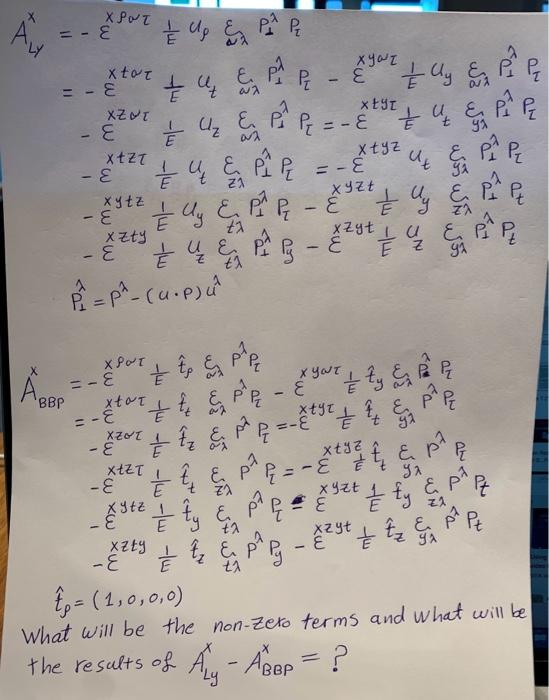 A_{Ly}^{x} = - ε^{xρστ} 1/E u_ρ ξ_{σλ} P_⊥^λ P_τ
= - ε^{xtστ} 1/E u_t ξ_{σλ} P_⊥^λ P_τ - ε^{xyστ} 1/E u_y ξ_{σλ} P_⊥^λ P_τ
- ε^{xzστ} 1/E u_z ξ_{σλ} P_⊥^λ P_τ = - ε^{xtyτ} 1/E u_t ξ_{yλ} P_⊥^λ P_τ
- ε^{xtzτ} 1/E u_t ξ_{zλ} P_⊥^λ P_τ = - ε^{xtyz} u_t ξ_{yλ} P_⊥^λ P_z
- ε^{xytz} 1/E u_y ξ_{tλ} P_⊥^λ P_z - ε^{xyzt} 1/E u_y ξ_{zλ} P_⊥^λ P_t
- ε^{xzty} 1/E u_z ξ_{tλ} P_⊥^λ P_y - ε^{xzyt} 1/E u_z ξ_{yλ} P_⊥^λ P_t
P_⊥^λ = P^λ - (u·P) u^λ
A_{BBP}^{x} = - ε^{xρστ} 1/E t̂_ρ ξ_{σλ} P^λ P_τ
= - ε^{xtστ} 1/E t̂_t ξ_{σλ} P^λ P_τ - ε^{xyστ} 1/E t̂_y ξ_{σλ} P^λ P_τ
- ε^{xzστ} 1/E t̂_z ξ_{σλ} P^λ P_τ = - ε^{xtyτ} 1/E t̂_t ξ_{yλ} P^λ P_τ
- ε^{xtzτ} 1/E t̂_t ξ_{zλ} P^λ P_τ = - ε^{xtyz} 1/E t̂_t ξ_{yλ} P^λ P_z
- ε^{xytz} 1/E t̂_y ξ_{tλ} P^λ P_z - ε^{xyzt} 1/E t̂_y ξ_{zλ} P^λ P_t
- ε^{xzty} 1/E t̂_z ξ_{tλ} P^λ P_y - ε^{xzyt} 1/E t̂_z ξ_{yλ} P^λ P_t
t̂_ρ = (1,0,0,0)
What will be the non-zero terms and what will be
the results of A_{Ly}^{x} - A_{BBP}^{x} = ?